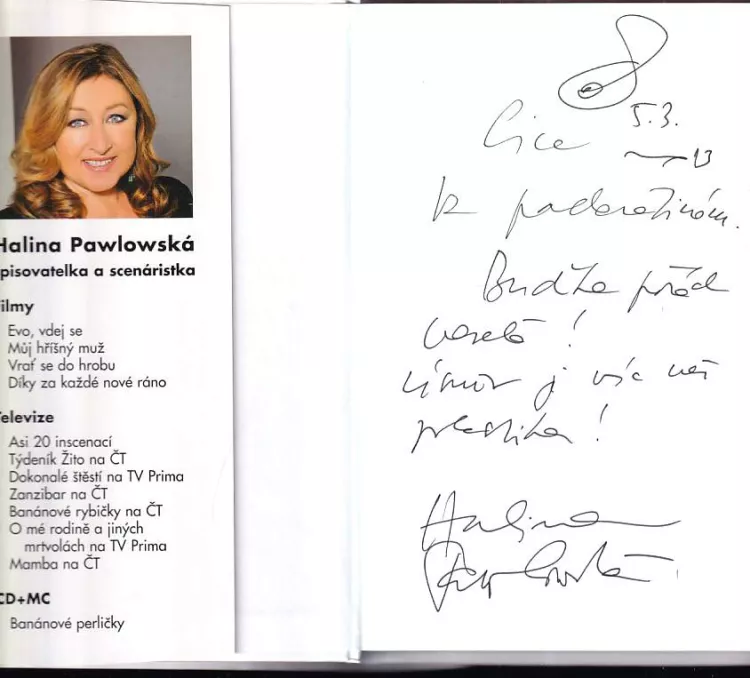 Halina Pawlowská
spisovatelka a scenáristka
Filmy
Evo, vdej se
Můj hříšný muž
Vrať se do hrobu
Díky za každé nové ráno
Televize
Asi 20 inscenací
Týdeník Žito na ČT
Dokonalé štěstí na TV Prima
Zanzibar na ČT
Banánové rybičky na ČT
O mé rodině a jiných
mrtvolách na TV Prima
Mamba na ČT
CD+MC
Banánové perličky
5.3.
13
k narozeninám.
Buďte pořád
veselá!
úsměv je víc než
plastika!
Halina
Pawlowská